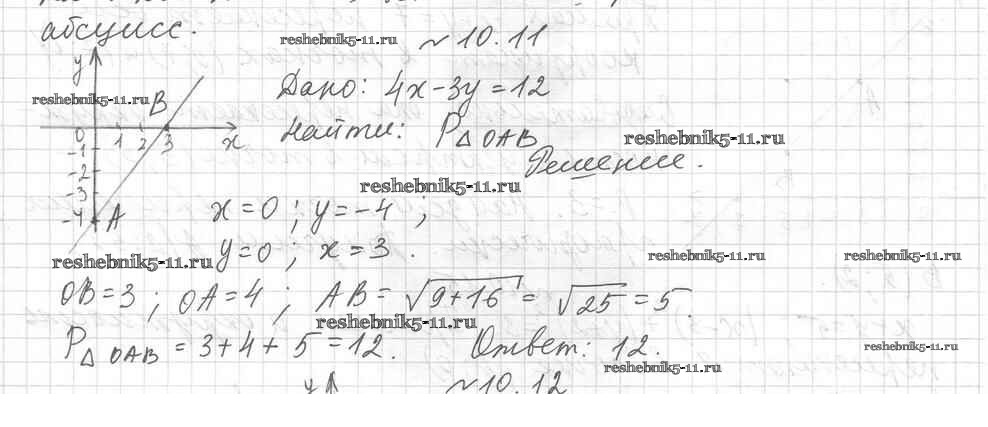 абсцисс.
reshebnik5-11.ru
№ 10.11
y
reshebnik5-11.ru
B
Дано: 4x-3y=12
0 1 2 3 x
Найти: P△OAB
reshebnik5-11.ru
-1
Решение.
-2
reshebnik5-11.ru
-3
-4 A
x=0; y=-4;
y=0; x=3.
reshebnik5-11.ru
reshebnik5-11.ru
reshebnik5-11.ru
OB=3; OA=4; AB=√9+16=√25=5.
reshebnik5-11.ru
P△OAB=3+4+5=12. Ответ: 12.
reshebnik5-11.ru
reshebnik5-11.ru
y
№10.12